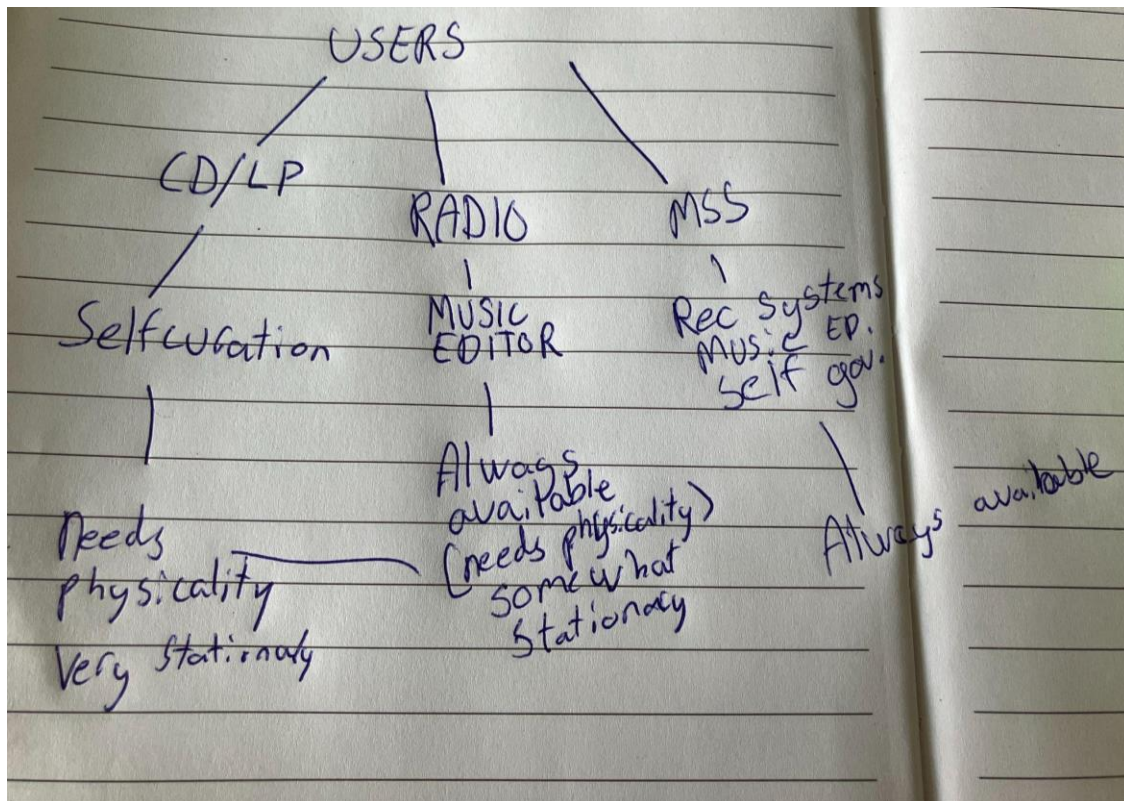 USERS
CD/LP
RADIO
MSS
Selfcuration
MUSIC
EDITOR
Rec Systems
Music ED.
Self gov.
Needs
physicality
Very Stationary
Always
available
(needs physicality)
somewhat
Stationary
Always available